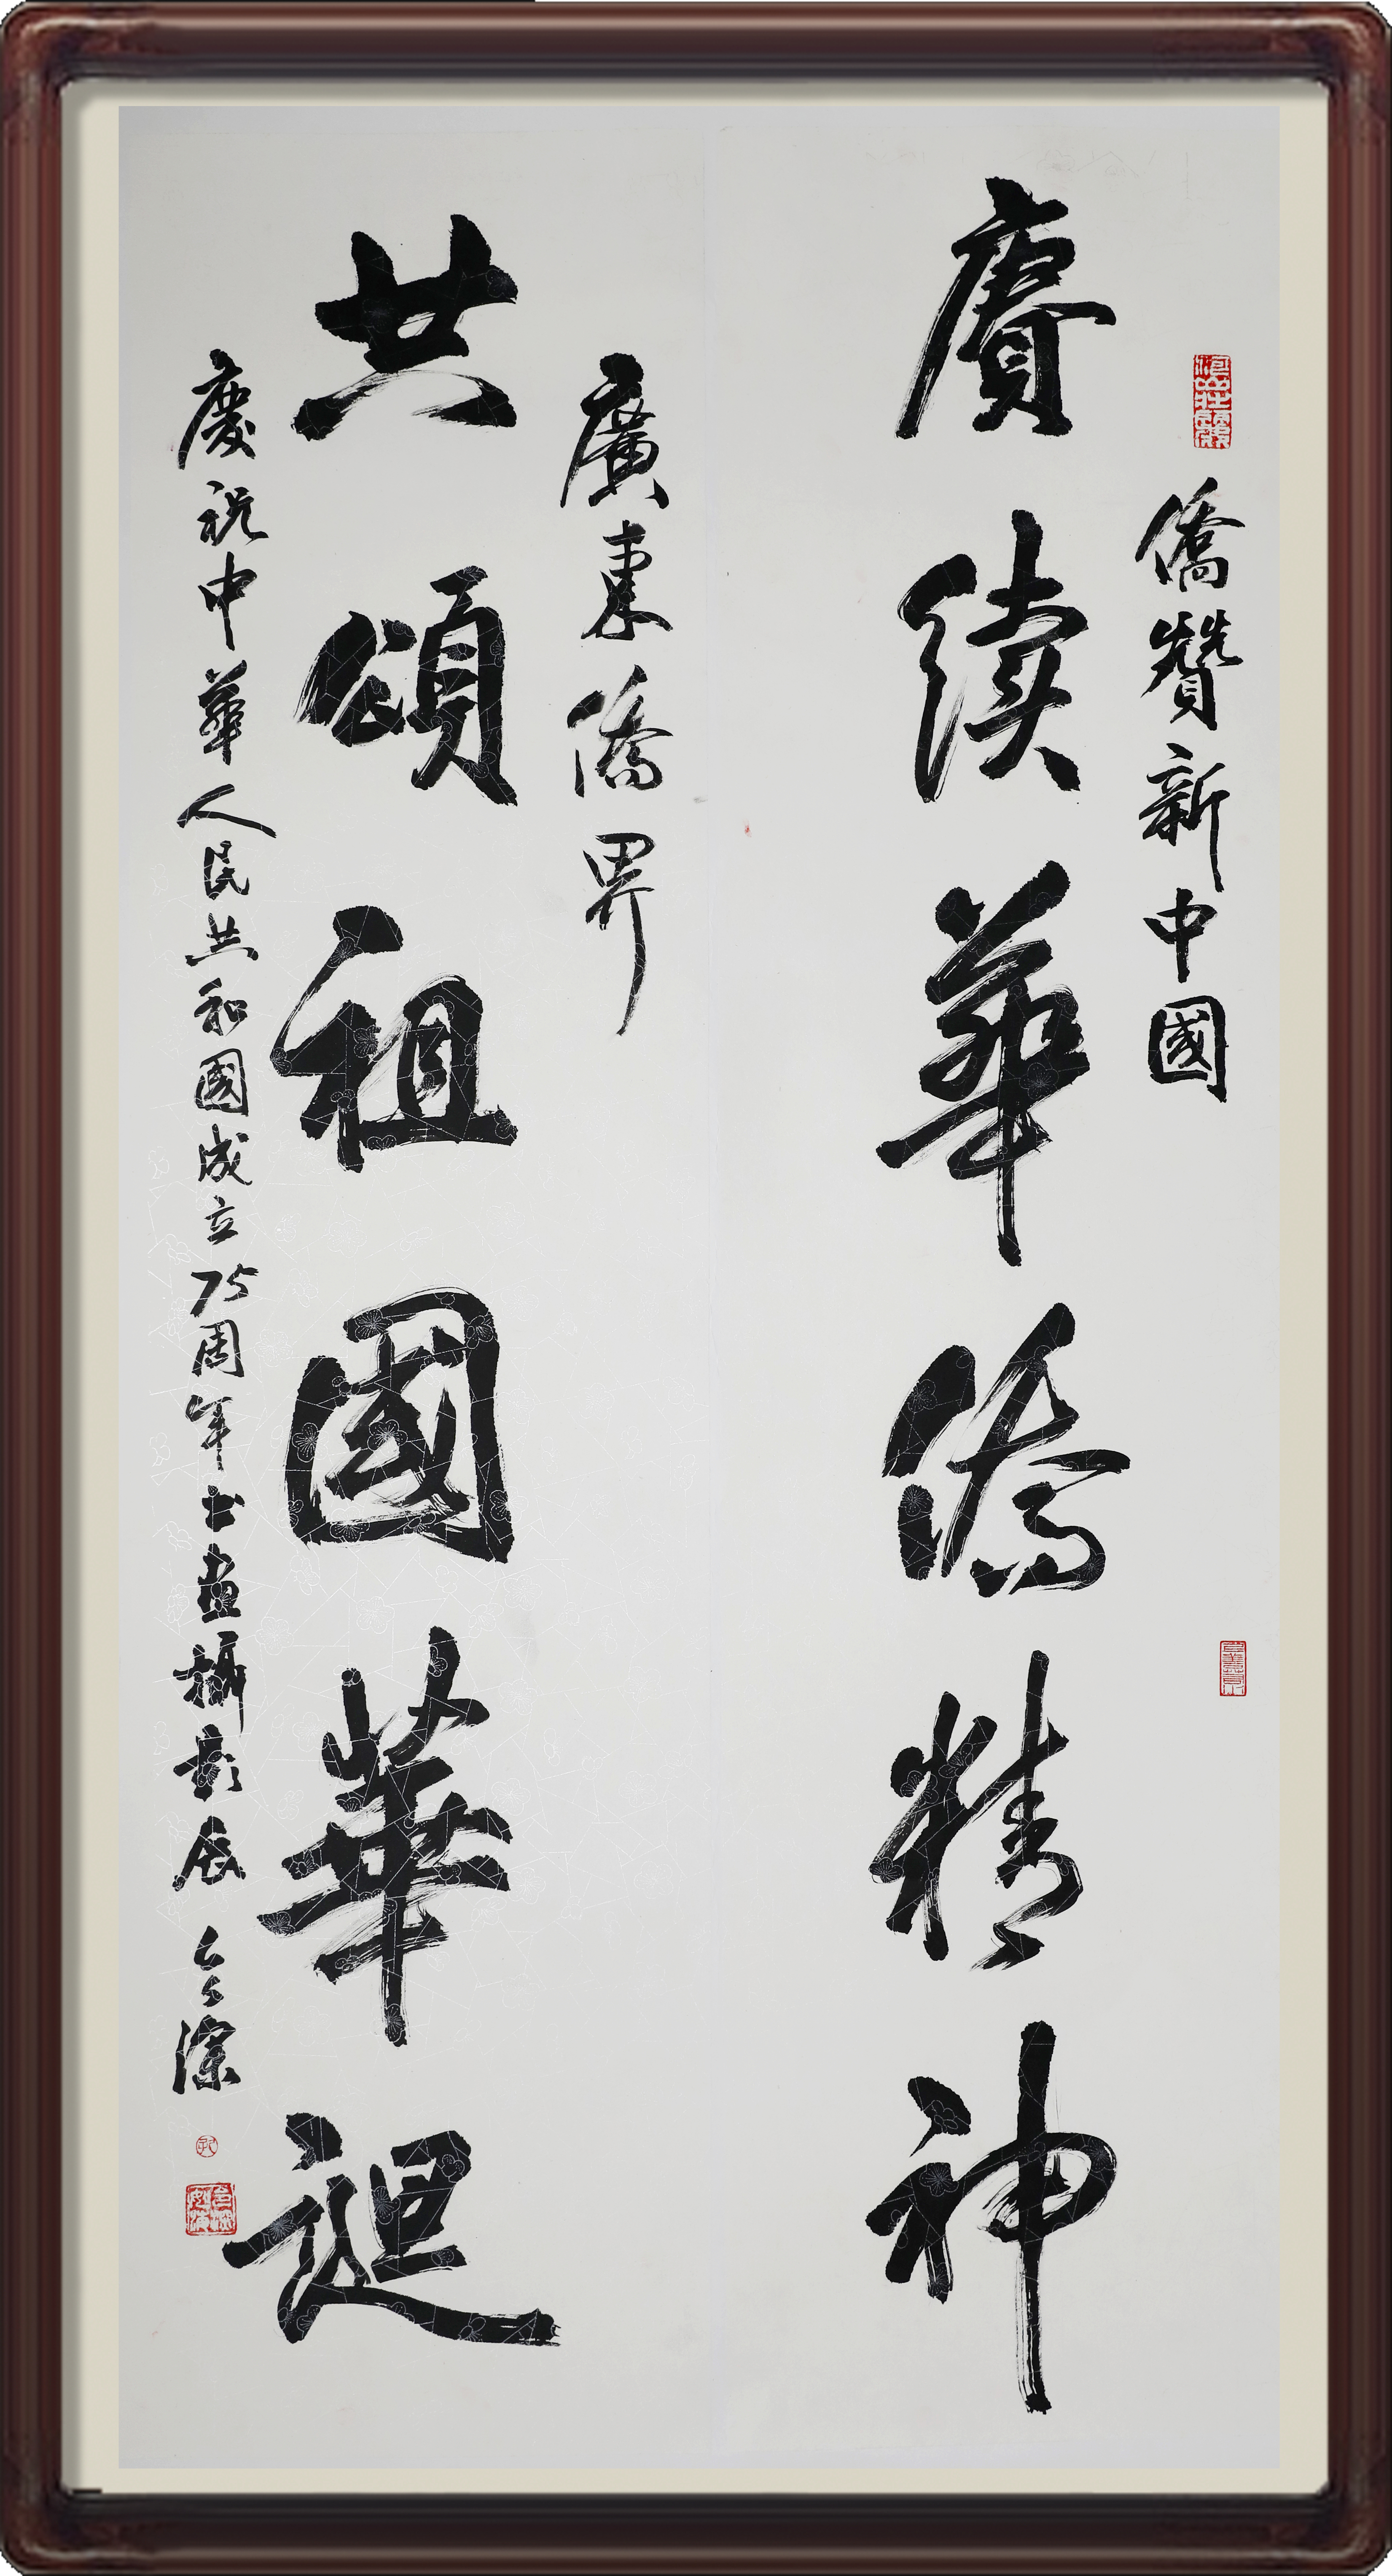 僑贊新中國
賡续華僑精神
廣東僑界
共頌祖國華誕
慶祝中華人民共和國成立75周年书畫攝影展